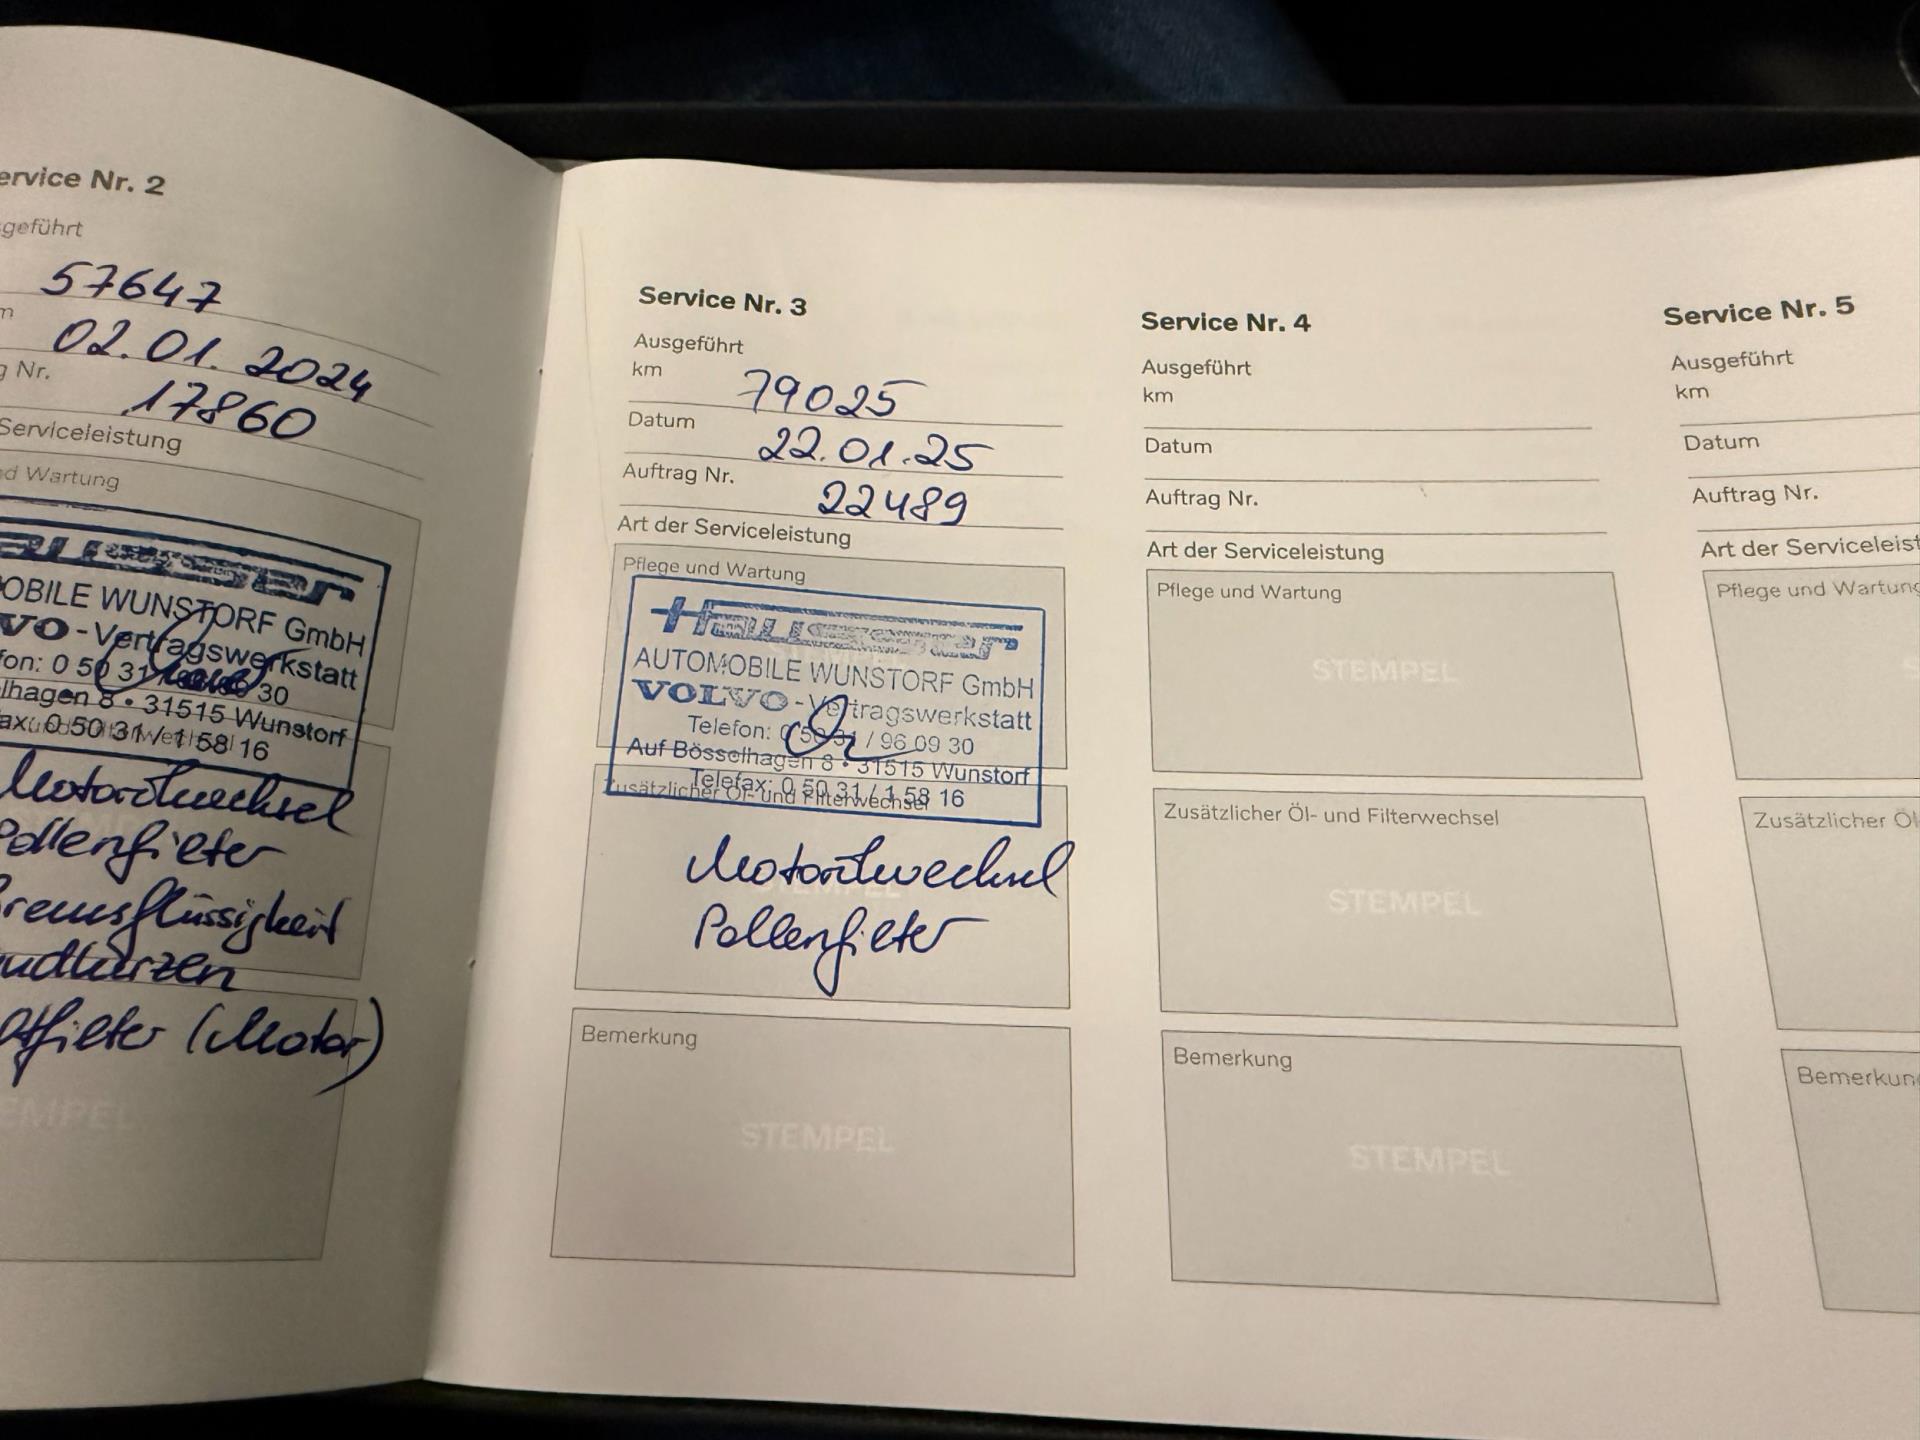 ervice Nr. 2
sgeführt
57647
m
02.01.2024
g Nr.
17860
Serviceleistung
nd Wartung
OBILE WUNSTORF GmbH
VO - Vertragswerkstatt
fon: 0 50 31 30
lhagen 8 • 31515 Wunstorf
ax: 0 50 31 / 1 58 16
Motorölwechsel
Pollenfilter
Bremsflüssigkeit
ndkerzen
ftfilter (Motor)
EMPEL
Service Nr. 3
Ausgeführt
km 79025
Datum 22.01.25
Auftrag Nr. 22489
Art der Serviceleistung
Pflege und Wartung
AUTOMOBILE WUNSTORF GmbH
VOLVO - Vertragswerkstatt
Telefon: 0 50 31 / 96 09 30
Auf Bösselhagen 8 • 31515 Wunstorf
Telefax: 0 50 31 / 1 58 16
Zusätzlicher Öl- und Filterwechsel
STEMPEL
Motorölwechsel
Pollenfilter
Bemerkung
STEMPEL
Service Nr. 4
Ausgeführt
km
Datum
Auftrag Nr.
Art der Serviceleistung
Pflege und Wartung
STEMPEL
Zusätzlicher Öl- und Filterwechsel
STEMPEL
Bemerkung
STEMPEL
Service Nr. 5
Ausgeführt
km
Datum
Auftrag Nr.
Art der Serviceleist
Pflege und Wartung
Zusätzlicher Öl-
Bemerkun